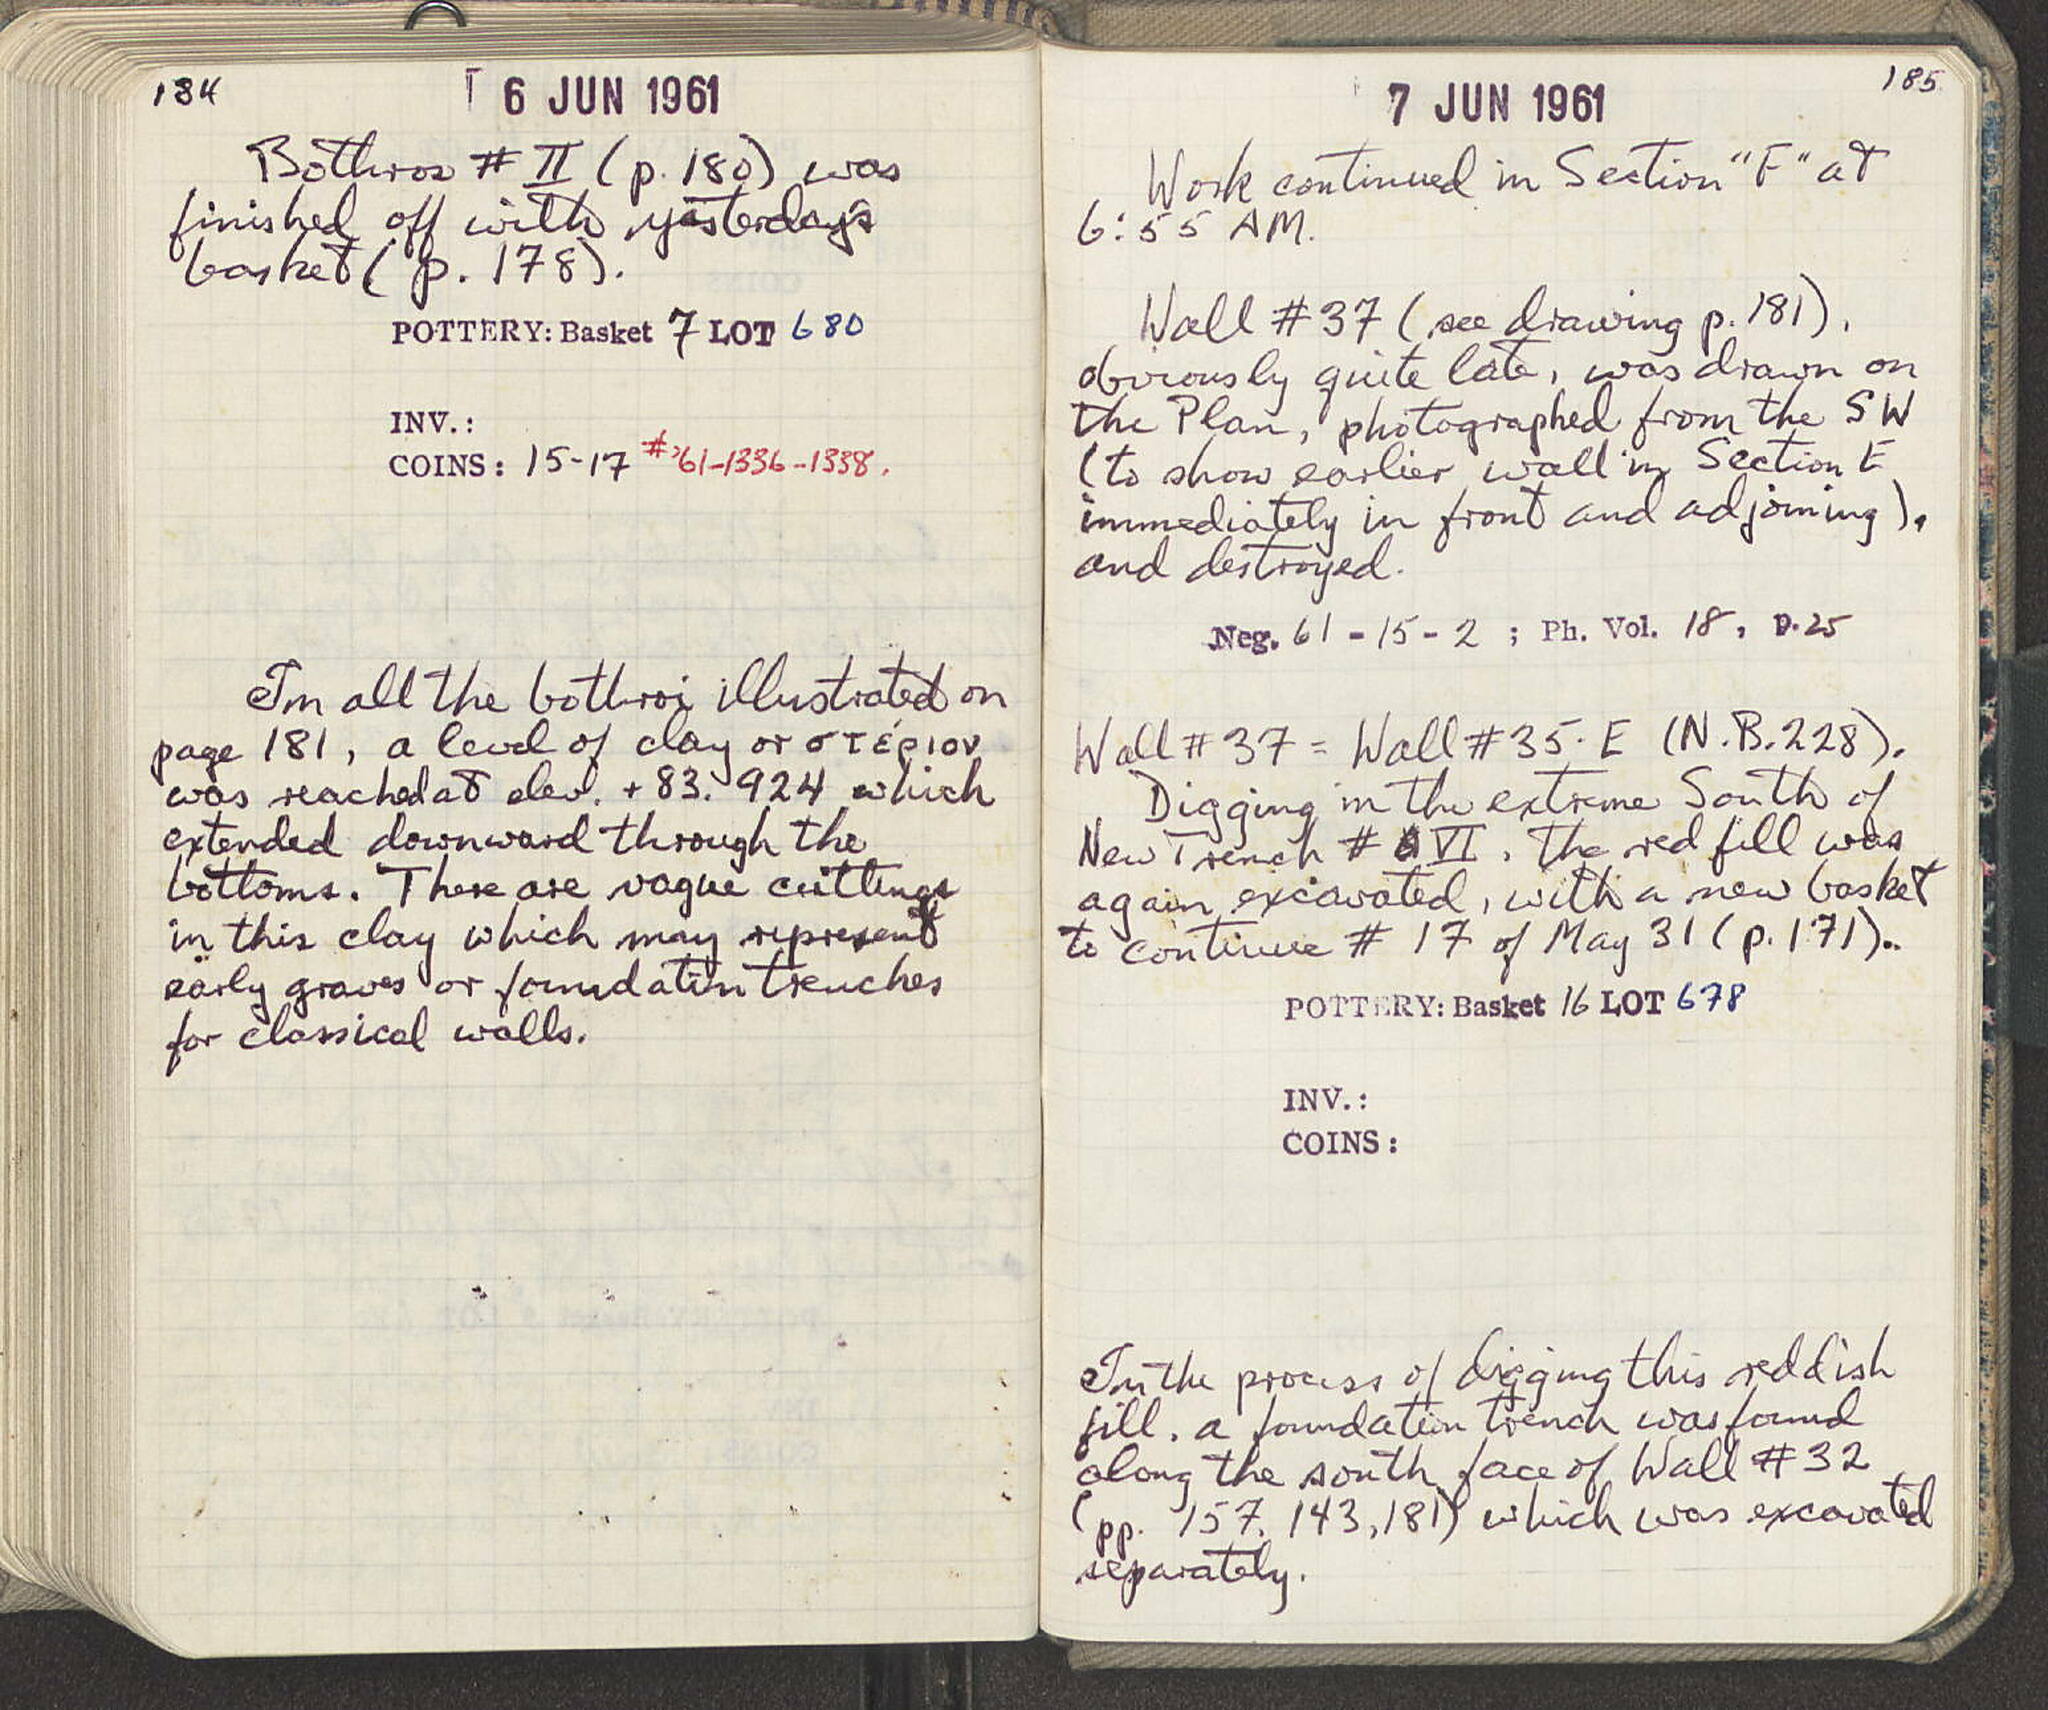 184
6 JUN 1961
Bothros # II (p. 180) was
finished off with yesterday's
basket (p. 178).
POTTERY: Basket 7 LOT 680
INV.:
COINS: 15-17 #'61-1336-1338.
In all the bothroi illustrated on
page 181, a level of clay or στέριον
was reached at elev. +83.924 which
extended downward through the
bottoms. There are vague cuttings
in this clay which may represent
early graves or foundation trenches
for classical walls.
185
7 JUN 1961
Work continued in Section "F" at
6:55 AM.
Wall #37 (see drawing p. 181),
obviously quite late, was drawn on
the Plan, photographed from the SW
(to show earlier wall in Section E
immediately in front and adjoining),
and destroyed.
Neg. 61-15-2 ; Ph. Vol. 18, p. 25
Wall #37 = Wall #35-E (N.B. 228).
Digging in the extreme South of
New Trench # VI, the red fill was
again excavated, with a new basket
to continue # 17 of May 31 (p. 171).
POTTERY: Basket 16 LOT 678
INV.:
COINS:
In the process of digging this reddish
fill, a foundation trench was found
along the south face of Wall #32
(pp. 157, 143, 181) which was excavated
separately.